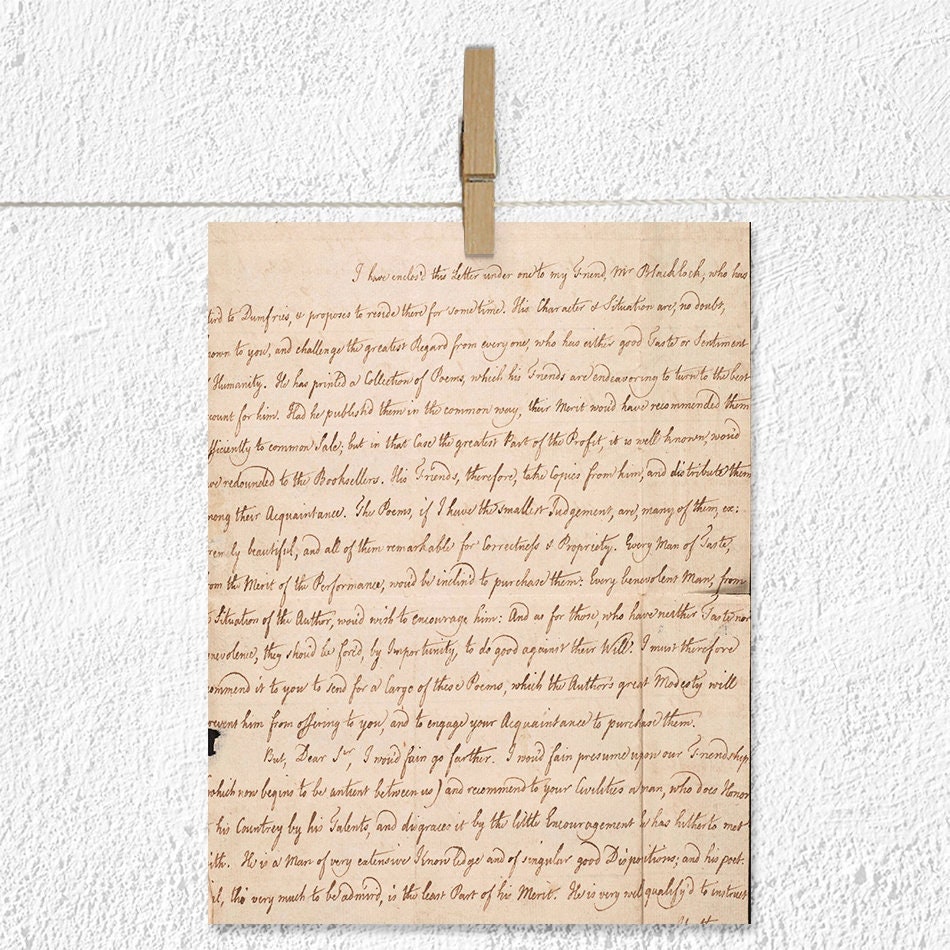 I have enclos'd this Letter under one to my Friend, Mr Blacklock, who has
tird to Dumfries, & proposes to reside there for some time. His Character & Situation are, no doubt,
own to you, and challenge the greatest Regard from every one, who has either good Taste or Sentiment
Humanity. He has printed a Collection of Poems, which his Friends are endeavoring to turn to the best
count for him. Had he publish'd them in the common way, their Merit woud have recommended them
fficiently to common Sale; but in that Case the greatest Part of the Profit, it is well known, woud
ve redounded to the Booksellers. His Friends, therefore, take Copies from him, and distribute them
mong their Acquaintance. The Poems, if I have the smallest Judgement, are, many of them, ex:
remely beautiful, and all of them remarkable for Correctness & Propriety. Every Man of Taste,
om the Merit of the Performance, woud be inclind to purchase them: Every benevolent Man, from
Situation of the Author, woud wish to encourage him: And as for those, who have neither Taste nor
nevolence, they shoud be forc'd, by Importunity, to do good against their Will. I must therefore
commend it to you to send for a Cargo of these Poems, which the Author's great Modesty will
revent him from offering to you, and to engage your Acquaintance to purchase them.
But, Dear Sir, I woud fain go farther. I woud fain presume upon our Friendship
which now begins to be antient between us) and recommend to your Civilities a man, who does Honor
his Countrey by his Talents, and disgraces it by the little Encouragement he has hitherto met
ith. He is a Man of very extensive Knowledge and of singular good Dispositions; and his poet.
al, tho very much to be admird, is the least Part of his Merit. He is very well qualify'd to instruct